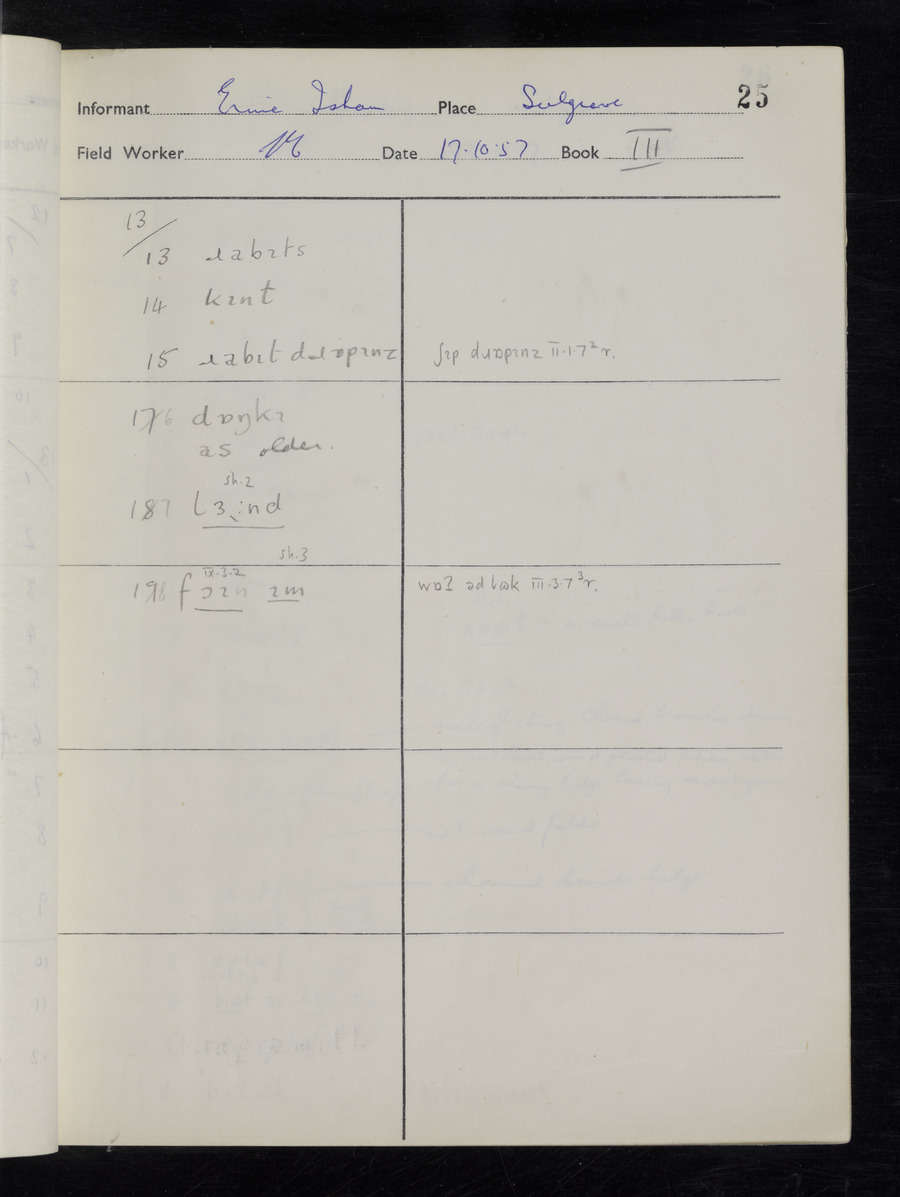 Informant Ernie Isham Place Sulgrave 25
Field Worker Date 17.10.57 Book III
13/
13 ɹabɪts
14 kɪnt
15 ɹabɪt dɹɒpɪnz ʃɪp dɹɒpɪnz II.1.7²r.
176 dɒŋkɪ
as older.
sh.2
187 lɜ:nd
sh.3
IX.3.2
198 fɔɪn ɪm wɒʔ əd lʊk III.3.7³r.